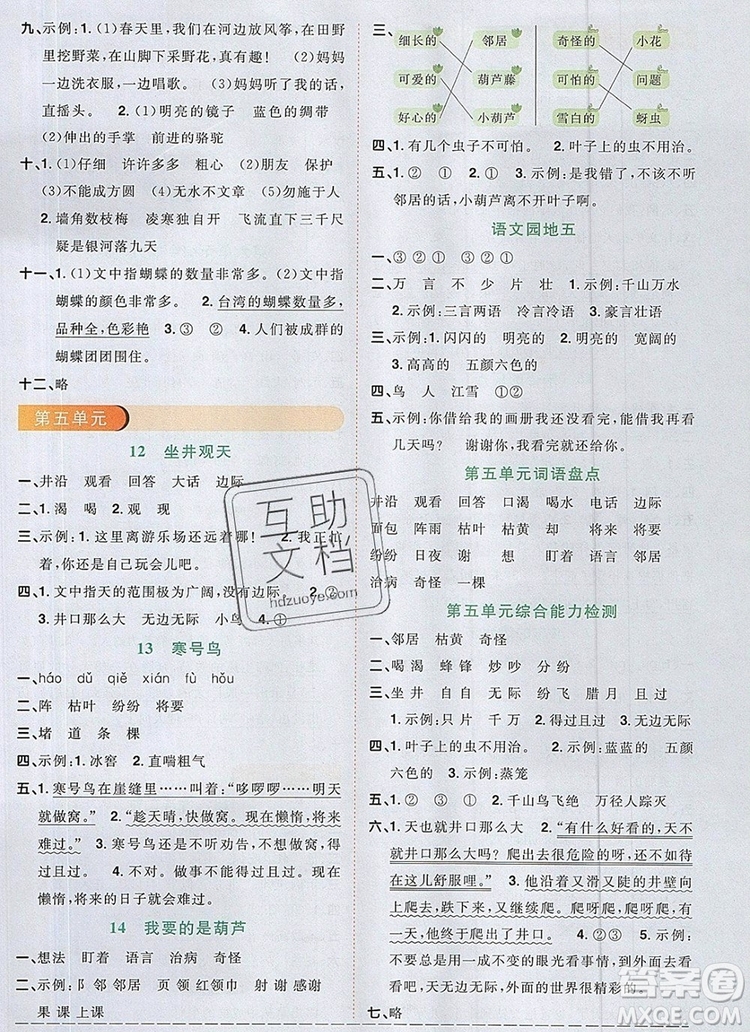 九、示例:1.(1)春天里,我们在河边放风筝,在田野
里挖野菜,在山脚下采野花,真高兴!(2)妈妈
一边洗衣服,一边唱歌。 (3)妈妈听了我的话,
直摇头。2.(1)明亮的镜子 蓝色的绸带
(2)伸出的手掌 前进的骆驼
十、1.(1)仔细 许许多多 粗心 (2)朋友 保护
(3)不能成方圆 (4)水不在深 (5)勿施于人
2. 墙角数枝梅 凌寒独自开 飞流直下三千尺
疑是银河落九天
十一、1.(1)文中指蝴蝶的数量非常多。(2)文中指
蝴蝶的颜色非常多。 2.台湾的蝴蝶数量多,
品种全,色彩艳 3.③ ② 4.人们被成群的
蝴蝶团团围住。
十二、略
第五单元
12 坐井观天
一、井沿 观看 回答 大话 边际
二、1.渴 喝 2.观 现
三、示例:1.这里离游乐场还远着呢! 2.我正忙
着呢,你还是自己玩会儿吧。
四、1.文中指天的范围极为广阔,没有边际。2.②
3.井口那么大 无边无际 小鸟 4.①
13 寒号鸟
一、háo dǔ qiě xián fù hǒu
二、阵 枯叶 纷纷 将要
三、堵 道 条 棵
四、示例:1.冰窖 2.直喘粗气
五、1.寒号鸟在崖缝里……叫着:“哆啰啰……明天
就做窝。” 2.“趁天晴,快做窝。现在懒惰,将来
难过。” 3.寒号鸟不听劝告,不愿做窝,得过
且过。 4.不对。做事不能得过且过。现在
懒惰,将来的日子就会难过。
14 我要的是葫芦
一、想法 盯着 语言 治病 奇怪
二、示例:阝邻 邻居 页 领 红领巾 射 谢 感谢
果 课 上课
三、
细长的 邻居 奇怪的 小花
可爱的 葫芦藤 可怕的 问题
好心的 小葫芦 雪白的 蚜虫
四、1.有几个虫子不可怕。 2.叶子上的虫不用治。
五、1.② ① ① 2.② 3.示例:是我错了,不该不听
邻居的话。小葫芦离不开叶子啊。
语文园地五
一、③②① ③②①
二、万 言 不 少 片 壮 1.示例:千山万水
2.示例:三言两语 冷言冷语 3.豪言壮语
三、示例:1.闪闪的 明亮的 2.明亮的 宽阔的
3.高高的 五颜六色的
四、鸟 人 江雪 ①
五、示例:你借给我的画册我还没看完,能再借我看
几天吗? 谢谢你,我看完一定尽快还你。
第五单元词语盘点
井沿 观看 回答 口渴 喝水 电话 边际
面包 阵雨 枯叶 枯黄 却 将来 将要
纷纷 日夜 谢 想 盯着 语言 邻居
治病 奇怪 一棵
第五单元综合能力检测
一、邻居 枯黄 奇怪
二、喝 渴 蜂 锋 炒 吵 分 纷
三、坐 井 自 无 际 纷 飞 腊 月 且 过
1.示例:只 片 千 万 2.得过且过 3.无边无际
四、1.叶子上的虫不用治。 2.示例:蓝蓝的 五颜
六色的 3.示例:蒸笼
五、1.② ③ ① 2.千山鸟飞绝 万径人踪灭
六、1.天也就井口那么大 2.“有什么好看的,天不
就井口那么大吗? 爬出去很危险的呀!还是
在这儿舒服哩。” 3.沿着又滑又陡的井壁向
上爬去。继续爬。爬呀爬,爬呀爬,青蛙
终于爬出了井口。 4.②③ 5.示例:外面的
世界多么大呀! 我们应该走出去看看外面
的世界,用一种不断变化的眼光看事情,到外
面去看看才能发现自己的不足。
七、略
互助
文档
hdzuoye.com
答案圈
MXQE.COM